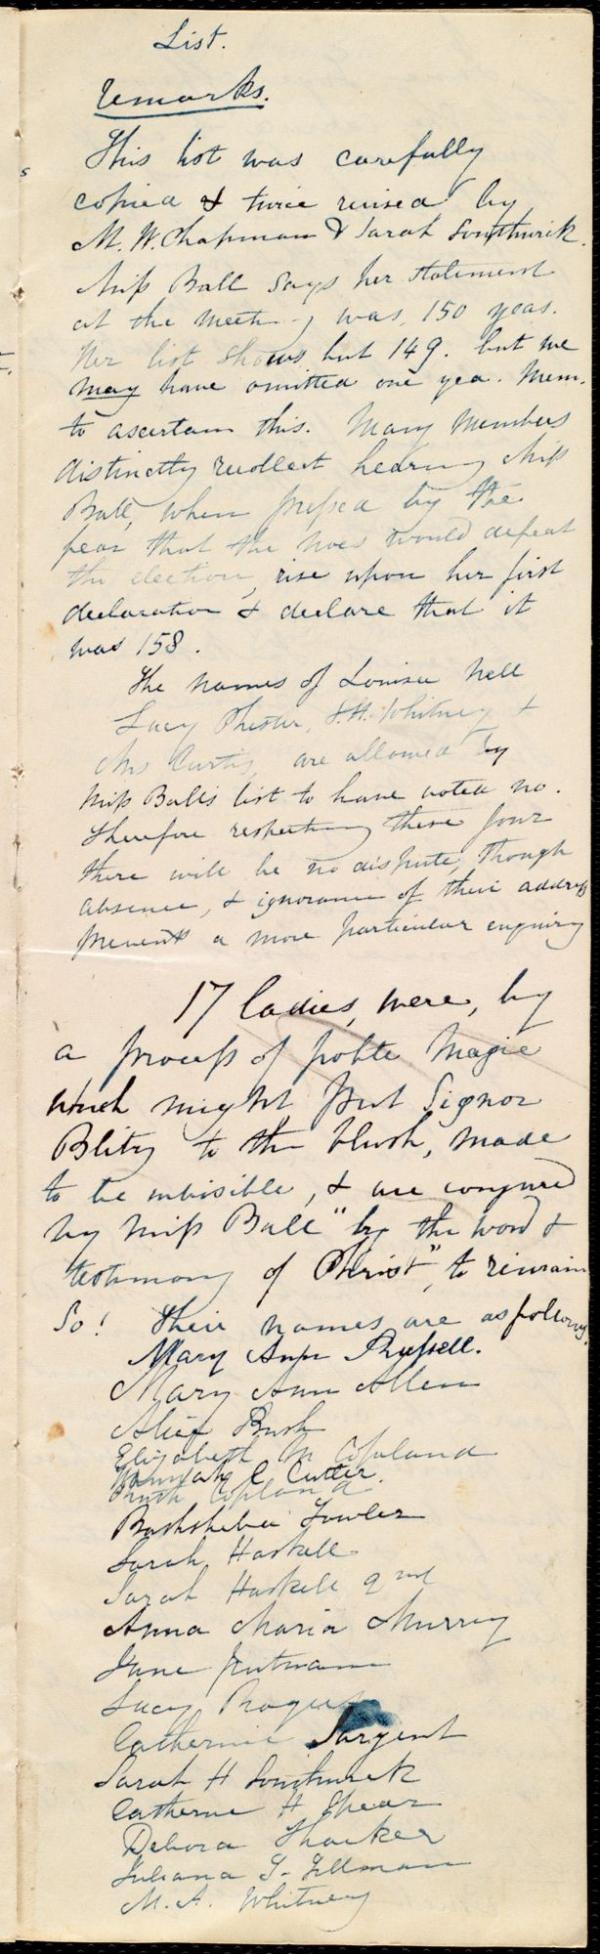 List.
Remarks.
This list was carefully
copied & twice revised by
M. W. Chapman & Sarah Southwick.
Miss Ball says her statement
at the meeting was, 150 yeas.
Her list shows but 149. but we
may have omitted one yea. Mem.
to ascertain this. Many members
distinctly recollect hearing Miss
Ball, when pressed by the
fear that the noes would defeat
the election, rise upon her first
declaration & declare that it
was 158.
The names of Louisa Nell
Lucy Chester, S. H. Whitney &
Mrs Curtis, are allowed by
Miss Balls list to have voted no.
therefore respecting these four
there will be no dispute, though
absence, & ignorance of their address
prevents a more particular enquiry
17 ladies, were, by
a process of polite magic
which might put Signor
Blitz to the blush, made
to be invisible, & are conjured
by Miss Ball "by the word &
testimony of Christ", to remain
So! Their names are as follows.
Mary Ann Russell.
Mary Ann Allen
Alice Bush
Elizabeth M Copeland
Hannah C Cutter.
Ruth Copland
Bathsheba Fowler
Sarah Haskell
Sarah Haskell 2nd
Anna Maria Murray
Jane Putnam
Lucy
Catherine Sargent
Sarah H Southwick
Catherine H Spear
Debora Thacker
Juliana T. Tillman
M. A. Whitney